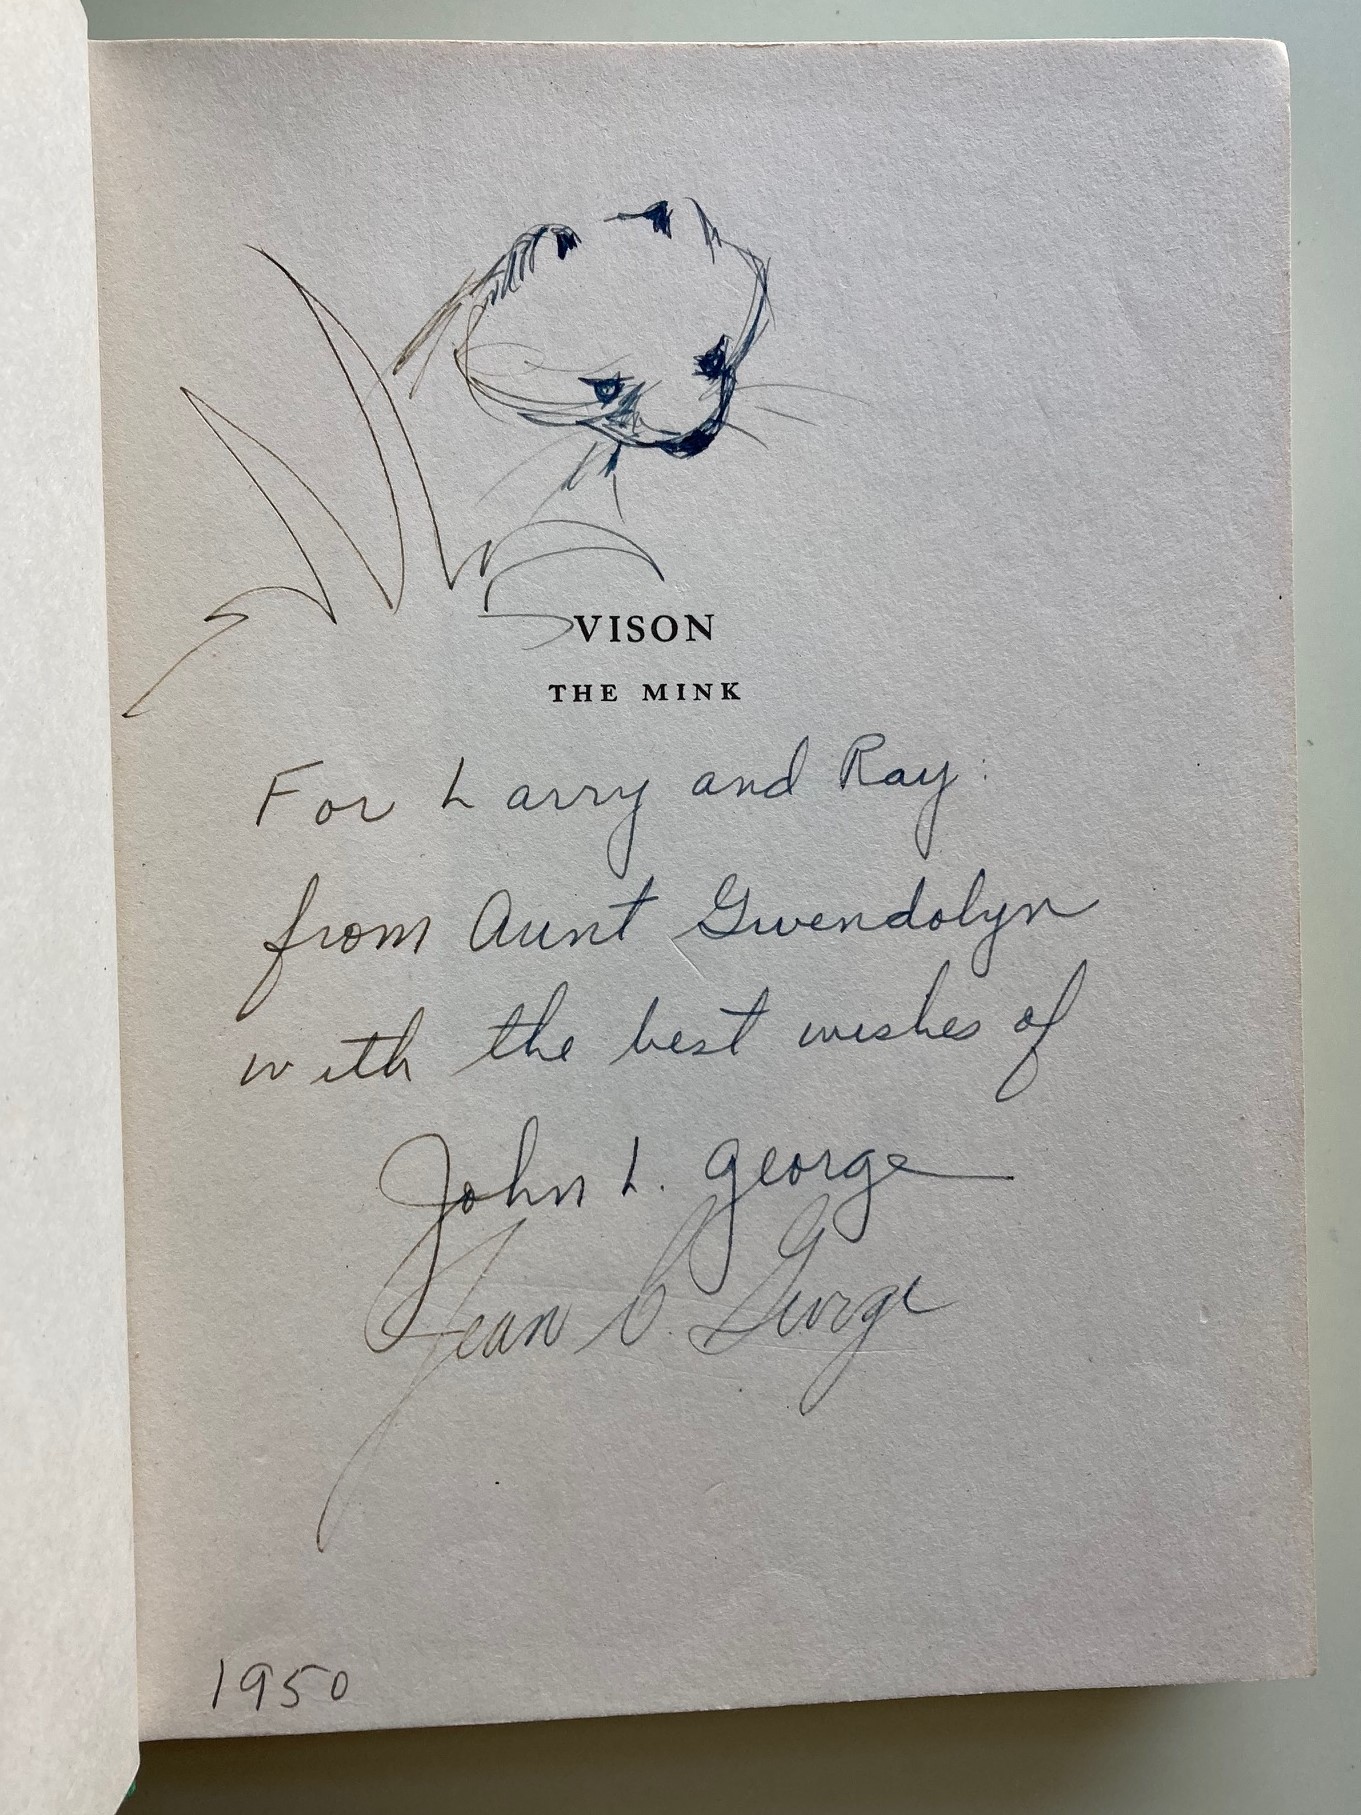 VISON
THE MINK
For Larry and Ray:
from Aunt Gwendolyn
with the best wishes of
John L. George
Jean C. George
1950